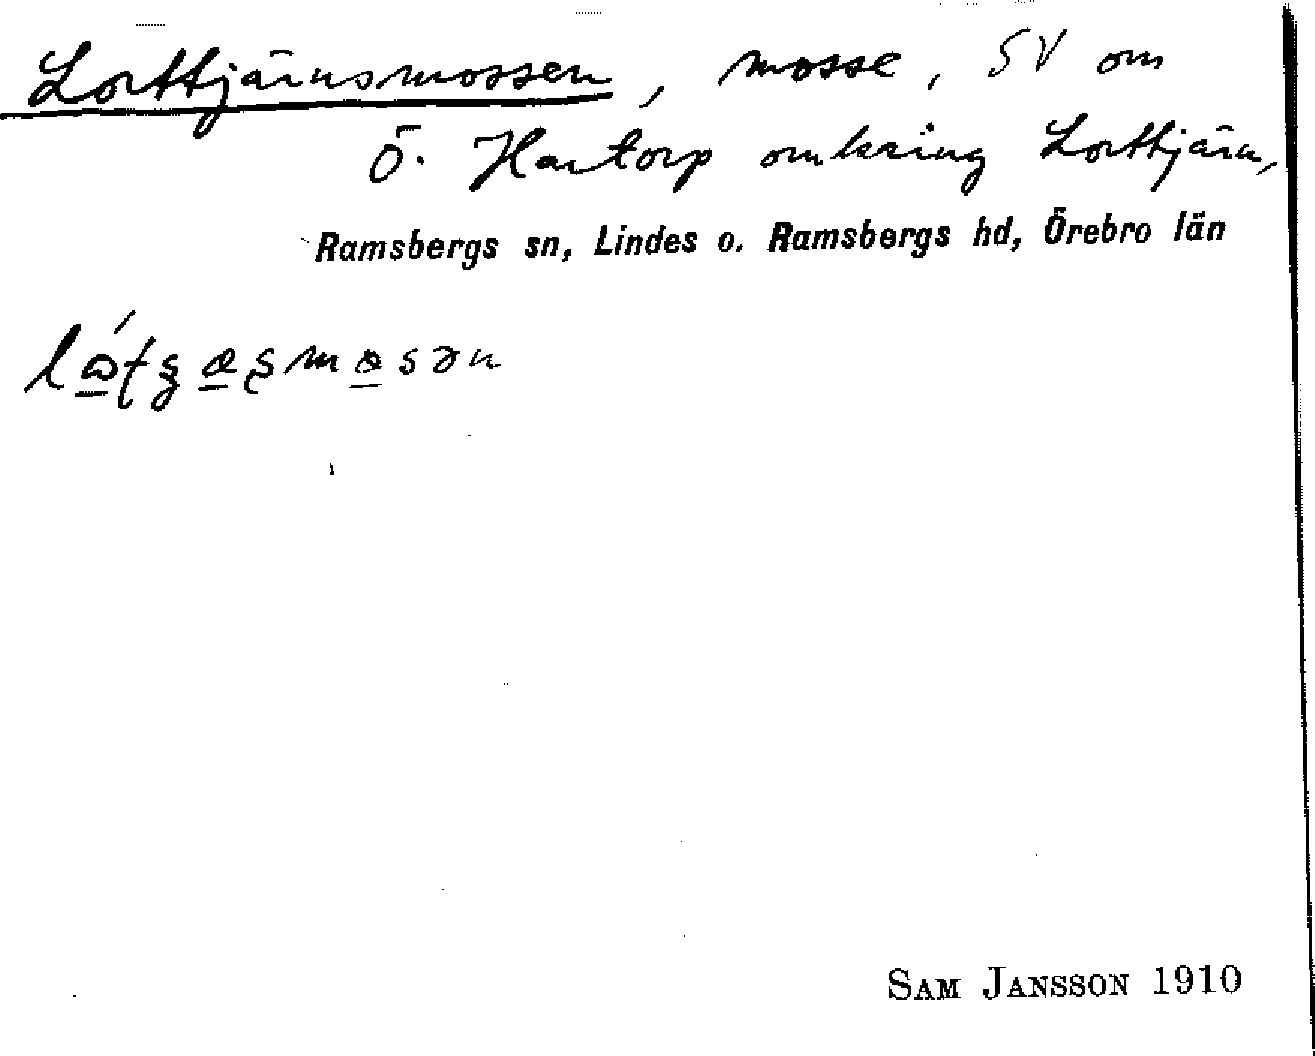 Lorttjärnsmossen, mosse, SV om
Ö. Hartorp omkring Lorttjärn,
Ramsbergs sn, Lindes o. Ramsbergs hd, Örebro län
SAM JANSSON 1910